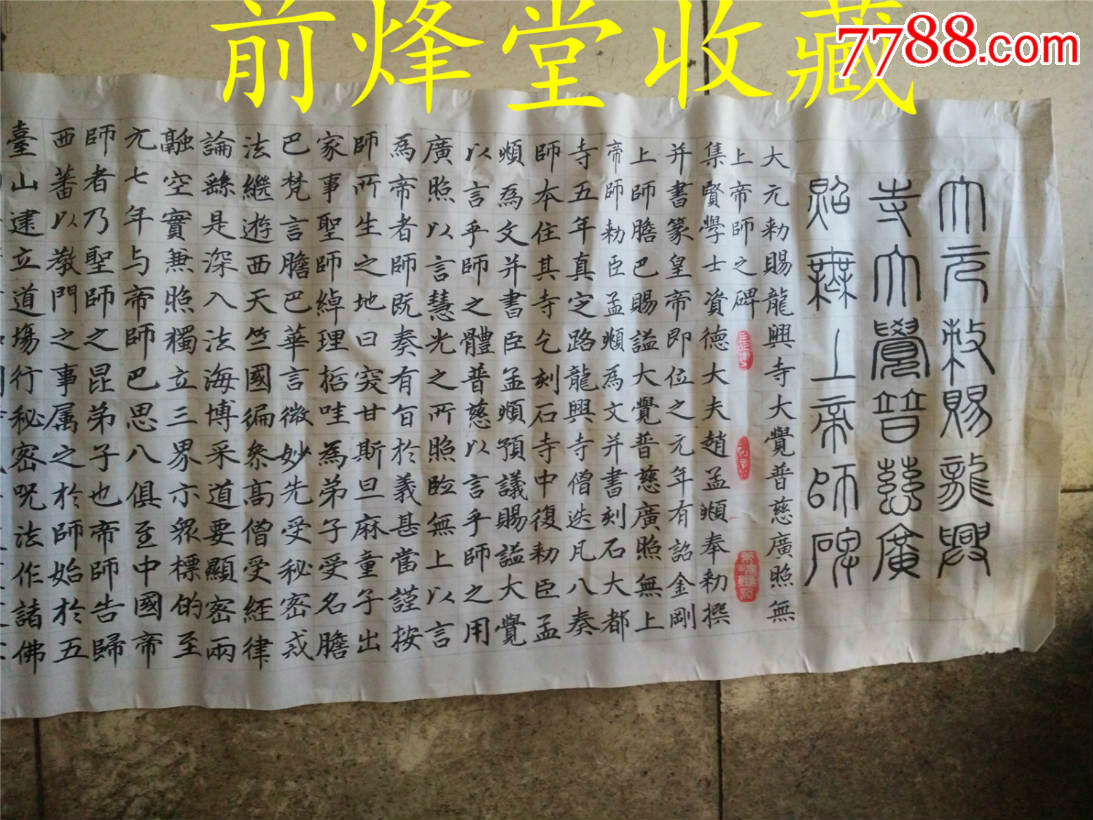 前烽堂收藏
7788.com
大元敕賜龍興
寺大覺普慈廣
照無上帝師碑
大元勑賜龍興寺大覺普慈廣照無
上帝師之碑
集賢學士資德大夫趙孟頫奉勑撰
并書篆皇帝即位之元年有詔金剛
上師膽巴賜謚大覺普慈廣照無上
帝師勑臣孟頫為文并書刻石大都
寺五年真定路龍興寺僧迭凡八奏
師本住其寺乞刻石寺中復勑臣孟
頫為文并書臣孟頫預議賜謚大覺
以言乎師之體普慈以言乎師之用
廣照以言慧光之所照臨無上以言
為帝者師既奏有旨於義甚當謹按
師所生之地曰突甘斯旦麻童子出
家事聖師綽理括哇為弟子受名膽
巴梵言膽巴華言微妙先受秘密戒
法繼遊西天竺國徧叅高僧受経律
論繇是深入法海博采道要顯密兩
融空實兼照獨立三界示眾標的至
元七年与帝師巴思八俱至中國帝
師者乃聖師之昆弟子也帝師告歸
西蕃以教門之事属之於師始於五
臺山建立道場行秘密咒法作諸佛